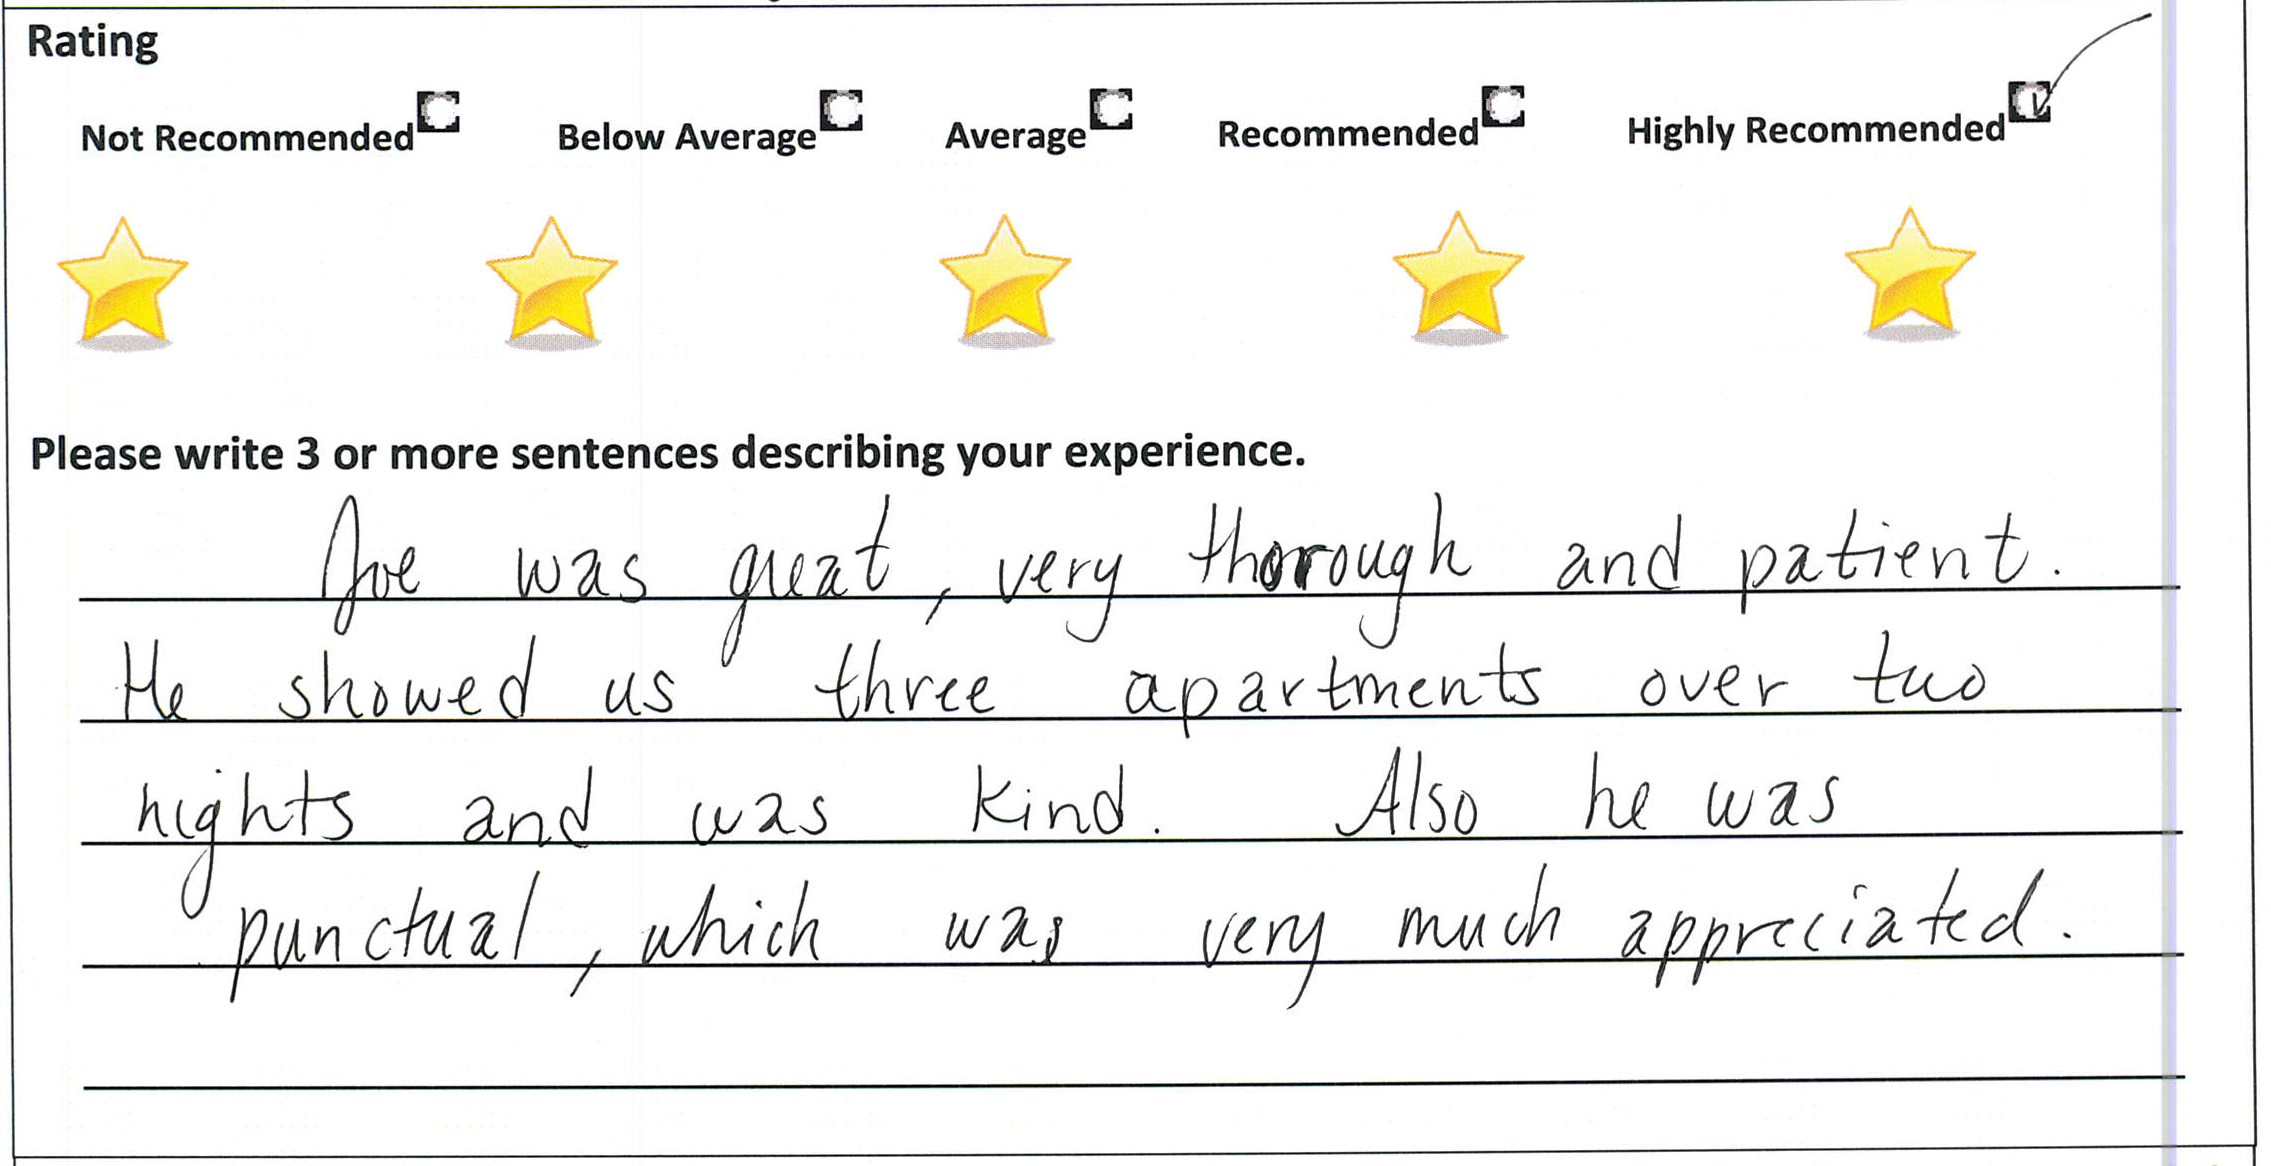 Rating
Not Recommended Below Average Average Recommended Highly Recommended
Please write 3 or more sentences describing your experience.
Joe was great, very thorough and patient.
He showed us three apartments over two
nights and was kind. Also he was
punctual, which was very much appreciated.